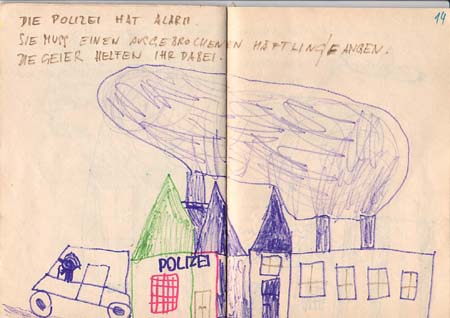 14
DIE POLIZEI HAT ALARM.
SIE MUSS EINEN AUSGEBROCHENEN HÄFTLING FANGEN.
DIE GEIER HELFEN IHR DABEI.
POLIZEI